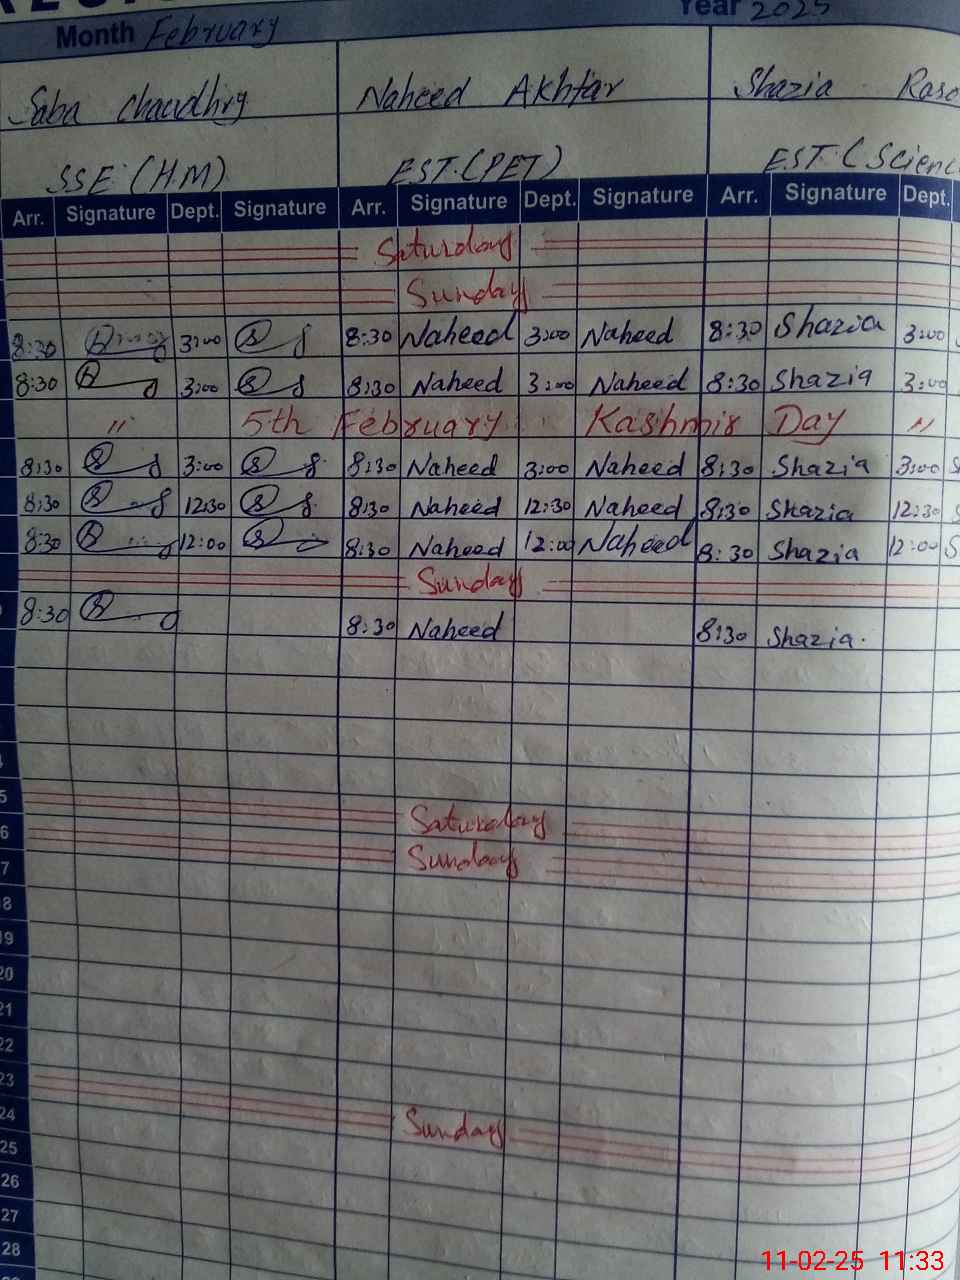 Month February Year 2025
Saba Chaudhry Naheed Akhtar Shazia
SSE (H.M) EST.(PET) EST.(Scienc
Arr. Signature Dept. Signature Arr. Signature Dept. Signature Arr. Signature Dept.
Saturday
Sunday
8:30 3:00 8:30 Naheed 3:00 Naheed 8:30 Shazia 3:00
8:30 3:00 8:30 Naheed 3:00 Naheed 8:30 Shazia 3:00
" 5th February Kashmir Day "
8:30 3:00 8:30 Naheed 3:00 Naheed 8:30 Shazia 3:00
8:30 12:30 8:30 Naheed 12:30 Naheed 8:30 Shazia 12:30
8:30 12:00 8:30 Naheed 12:00 Naheed 8:30 Shazia 12:00
Sunday
8:30 8:30 Naheed 8:30 Shazia.
5
Saturday
6
Sunday
7
8
19
20
21
22
23
24 Sunday
25
26
27
28
11-02-25 11:33